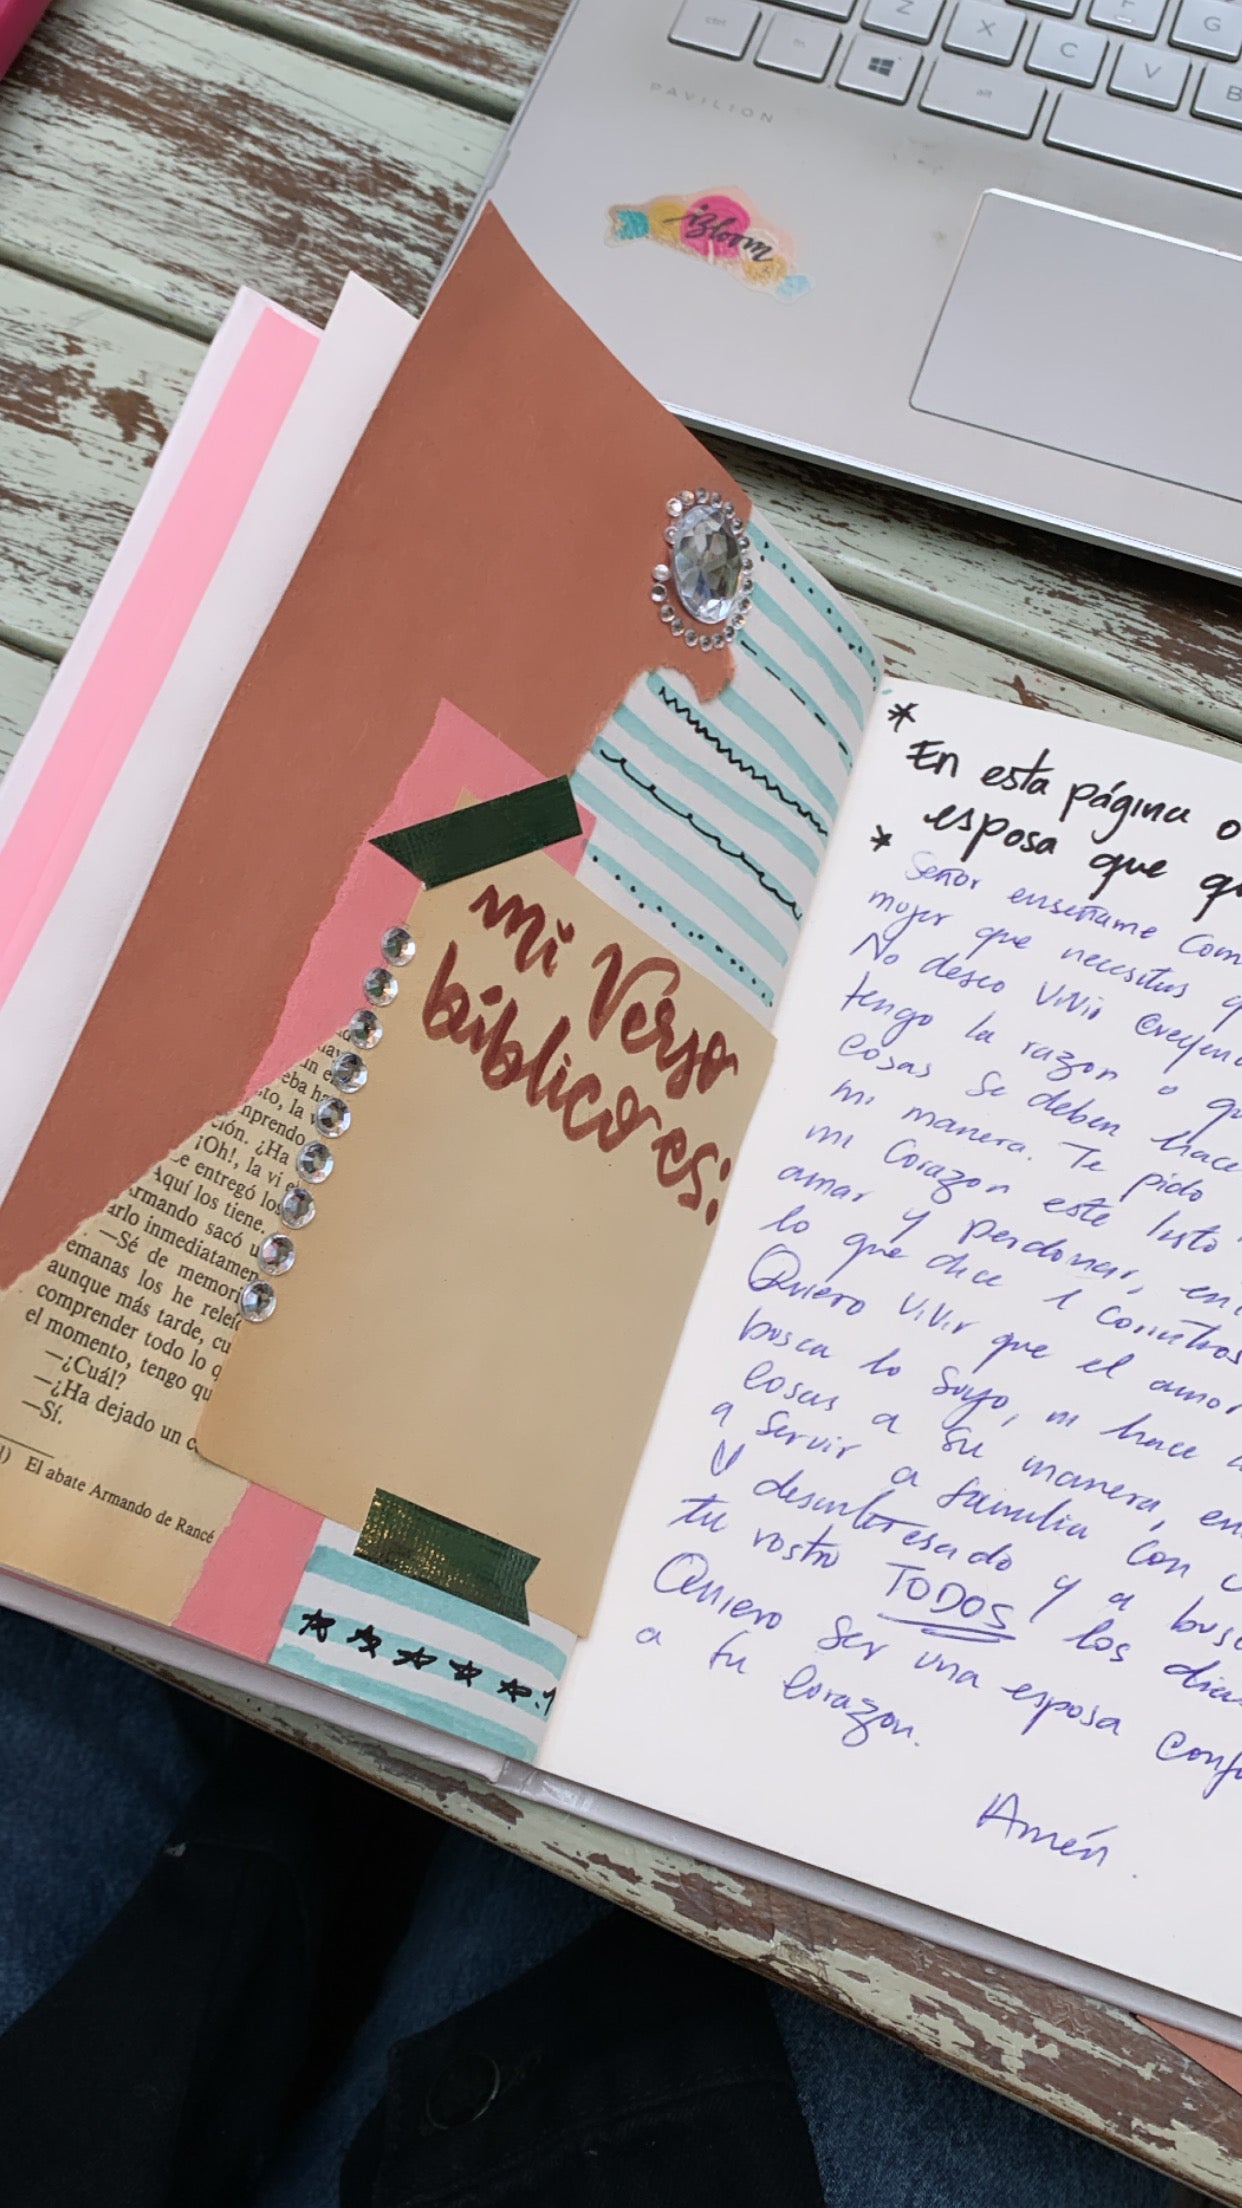 ctrl
fn
alt
Z
X
C
V
B
F
G
PAVILION
izloom
mi Verso
bíblico es:
ción. ¿Ha
¡Oh!, la vi
entregó los
Aquí los tiene.
Armando sacó u
arlo inmediatamen
—Sé de memori
emanas los he releíc
aunque más tarde, cu
comprender todo lo q
el momento, tengo qu
—¿Cuál?
—¿Ha dejado un c
—Sí.
El abate Armando de Rancé
* En esta página o
esposa que qu
* Señor enseñame Com
mujer que necesitas q
No deseo vivir Creyen
tengo la razon o qu
cosas se deben hace
mi manera. Te pido
mi Corazon este
amar y perdonar, en
lo que dice 1 Corintios
Quiero vivir que el amor
busca lo suyo, ni hace
cosas a su manera, en
a servir a familia con
desinteresado y a bus
tu rostro TODOS los dias
Quiero ser una esposa conf
a tu Corazon.
Amén.